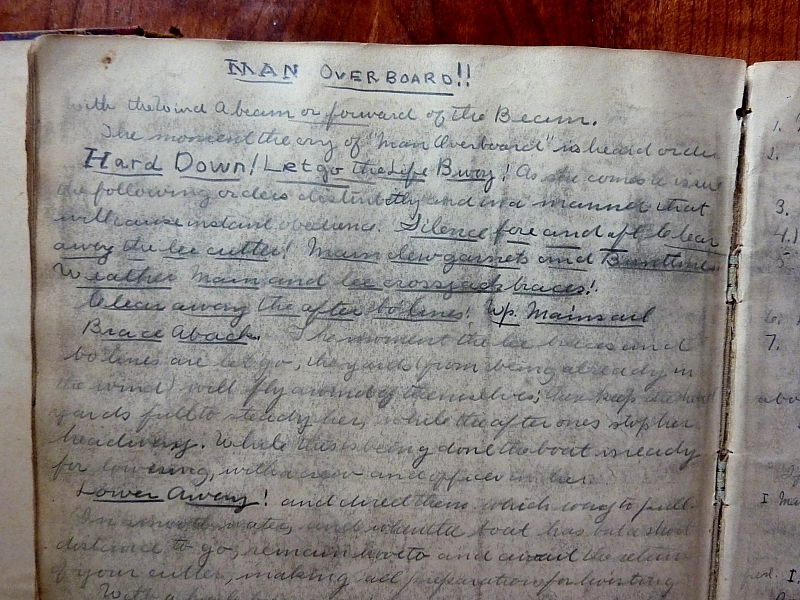 MAN OVERBOARD!!
with the Wind Abeam or forward of the Beam.
The moment the cry of "Man Overboard" is heard order
Hard Down! Let go the Life Buoy! As she comes to issue
the following orders distinctly and in a manner that
will cause instant obedience! Silence fore and aft! Clear
away the lee cutter! Main clewgarnets and Buntlines!
Weather Main and lee crossjack braces!
Clear away the after bolines! Up Mainsail
Brace Aback. The moment the lee braces and
bolines are let go, the yards (from being already in
the wind) will fly around of themselves; keep the head
yards full to steady her, while the after ones stop her
headway. While this is being done the boat is ready
for lowering, with a crew and officer in her.
Lower Away! and direct them which way to pull.
In smooth water, and when the boat has but a short
distance to go, remain hove to and await the return
of your cutter, making all preparation for hoisting
With a
1.
2.
3.
4.)
5.
6.
7.
abo
I Ma
I.